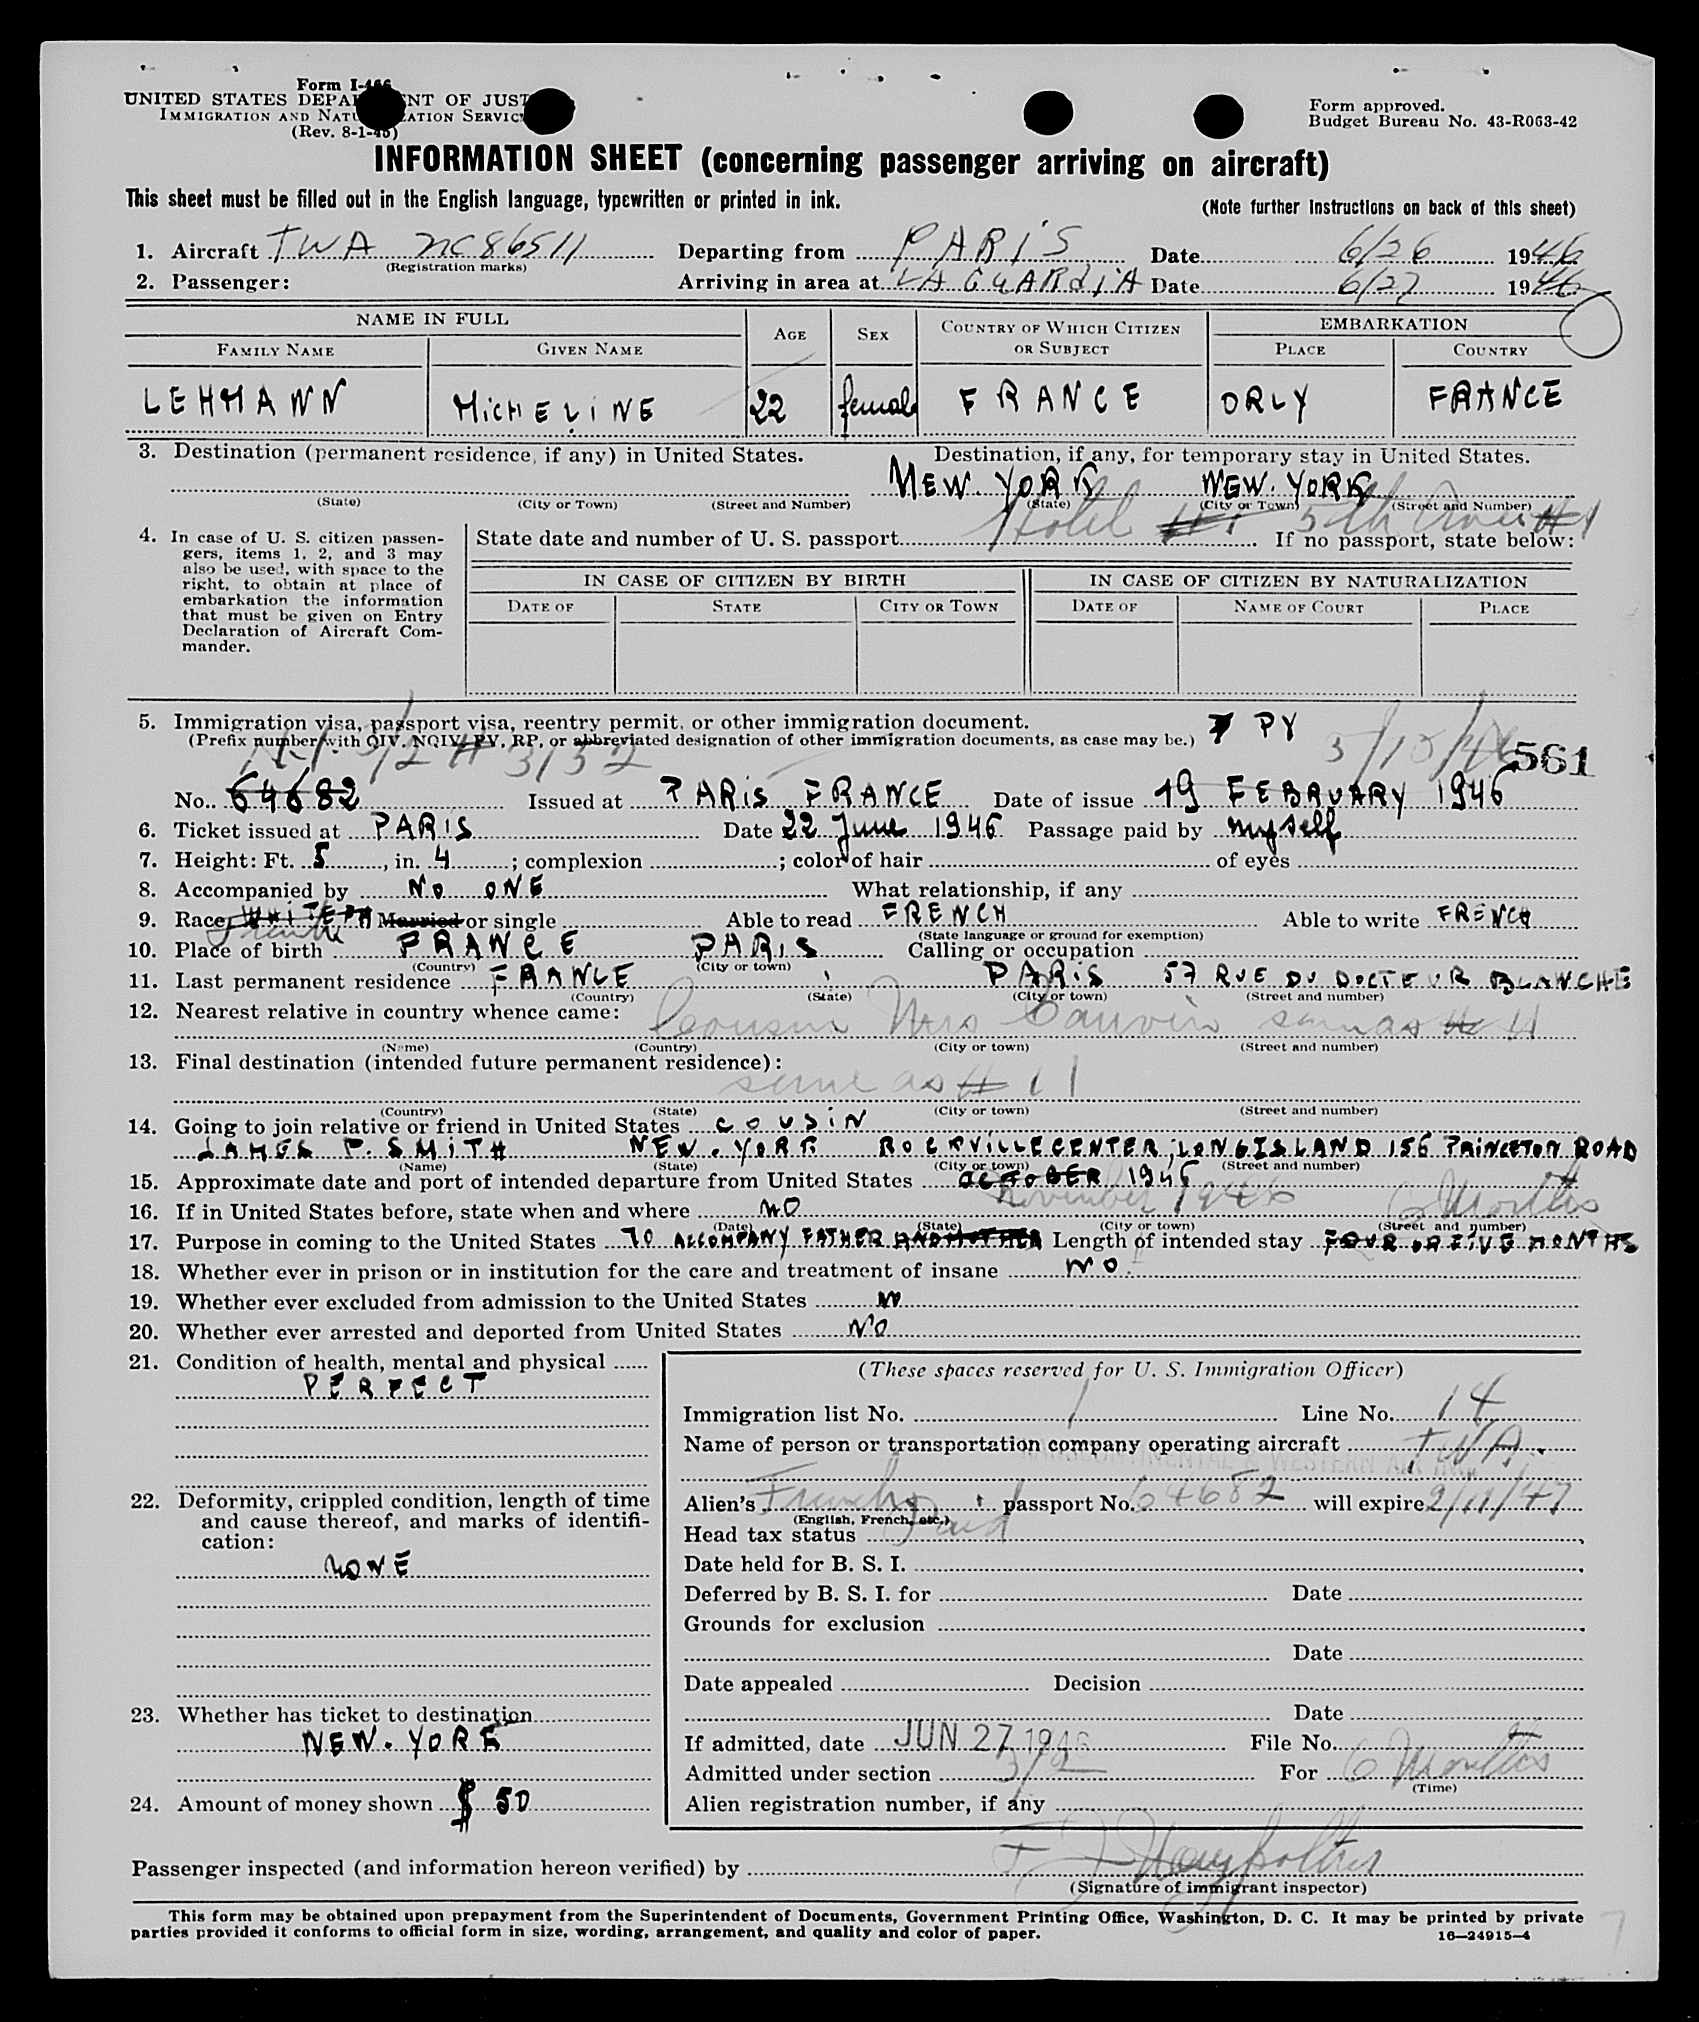 Form I-466
UNITED STATES DEPARTMENT OF JUSTICE
IMMIGRATION AND NATURALIZATION SERVICE
(Rev. 8-1-45)
Form approved.
Budget Bureau No. 43-R063-42
INFORMATION SHEET (concerning passenger arriving on aircraft)
This sheet must be filled out in the English language, typewritten or printed in ink.
(Note further instructions on back of this sheet)
1. Aircraft TWA NC86511 Departing from PARIS Date 6/26 1946
(Registration marks)
2. Passenger: Arriving in area at LA GUARDIA Date 6/27 1946
NAME IN FULL AGE SEX COUNTRY OF WHICH CITIZEN OR SUBJECT EMBARKATION
FAMILY NAME GIVEN NAME PLACE COUNTRY
LEHMANN MICHELINE 22 female FRANCE ORLY FRANCE
3. Destination (permanent residence, if any) in United States. Destination, if any, for temporary stay in United States.
NEW. YORK NEW. YORK
(State) (City or Town) (Street and Number) (State) (City or Town) (Street and Number)
Hotel 5th Ave
4. In case of U. S. citizen passengers, items 1, 2, and 3 may also be used, with space to the right, to obtain at place of embarkation the information that must be given on Entry Declaration of Aircraft Commander.
State date and number of U. S. passport If no passport, state below:
IN CASE OF CITIZEN BY BIRTH IN CASE OF CITIZEN BY NATURALIZATION
DATE OF STATE CITY OR TOWN DATE OF NAME OF COURT PLACE
5. Immigration visa, passport visa, reentry permit, or other immigration document.
(Prefix number with QIV, NQIV, PV, RP, or abbreviated designation of other immigration documents, as case may be.) PV
3/2 # 3132 5/15/46 561
No. 64682 Issued at PARIS FRANCE Date of issue 19 FEBRUARY 1946
6. Ticket issued at PARIS Date 22 June 1946 Passage paid by myself
7. Height: Ft. 5, in. 4; complexion ; color of hair of eyes
8. Accompanied by NO ONE What relationship, if any
9. Race WHITE French Married or single Able to read FRENCH Able to write FRENCH
(State language or ground for exemption)
10. Place of birth FRANCE PARIS Calling or occupation
(Country) (City or town)
11. Last permanent residence FRANCE PARIS 57 RUE DU DOCTEUR BLANCHE
(Country) (State) (City or town) (Street and number)
12. Nearest relative in country whence came:
Cousin Mrs Cauvin same as # 11
(Name) (Country) (City or town) (Street and number)
13. Final destination (intended future permanent residence):
same as # 11
(Country) (State) (City or town) (Street and number)
14. Going to join relative or friend in United States COUSIN
JAMES P. SMITH NEW. YORK ROCKVILLECENTER, LONGISLAND 156 PRINCETON ROAD
(Name) (State) (City or town) (Street and number)
15. Approximate date and port of intended departure from United States OCTOBER 1946
November 1946 6 Months
16. If in United States before, state when and where NO
(Date) (State) (City or town) (Street and number)
17. Purpose in coming to the United States TO ACCOMPANY FATHER AND MOTHER Length of intended stay FOUR OR FIVE MONTHS
18. Whether ever in prison or in institution for the care and treatment of insane NO.
19. Whether ever excluded from admission to the United States
20. Whether ever arrested and deported from United States NO
21. Condition of health, mental and physical
PERFECT
22. Deformity, crippled condition, length of time and cause thereof, and marks of identification:
NONE
23. Whether has ticket to destination
NEW. YORK
24. Amount of money shown $ 50
(These spaces reserved for U. S. Immigration Officer)
Immigration list No. 1 Line No. 14
Name of person or transportation company operating aircraft TWA.
TRANSCONTINENTAL & WESTERN AIR INC.
Alien's French passport No. 64682 will expire 2/19/47
(English, French, etc.)
Head tax status Paid
Date held for B. S. I.
Deferred by B. S. I. for Date
Grounds for exclusion
Date
Date appealed Decision
Date
If admitted, date JUN 27 1946 File No.
Admitted under section 3/2 For 6 Months
(Time)
Alien registration number, if any
Passenger inspected (and information hereon verified) by
(Signature of immigrant inspector)
This form may be obtained upon prepayment from the Superintendent of Documents, Government Printing Office, Washington, D. C. It may be printed by private
parties provided it conforms to official form in size, wording, arrangement, and quality and color of paper.
16—24915-4